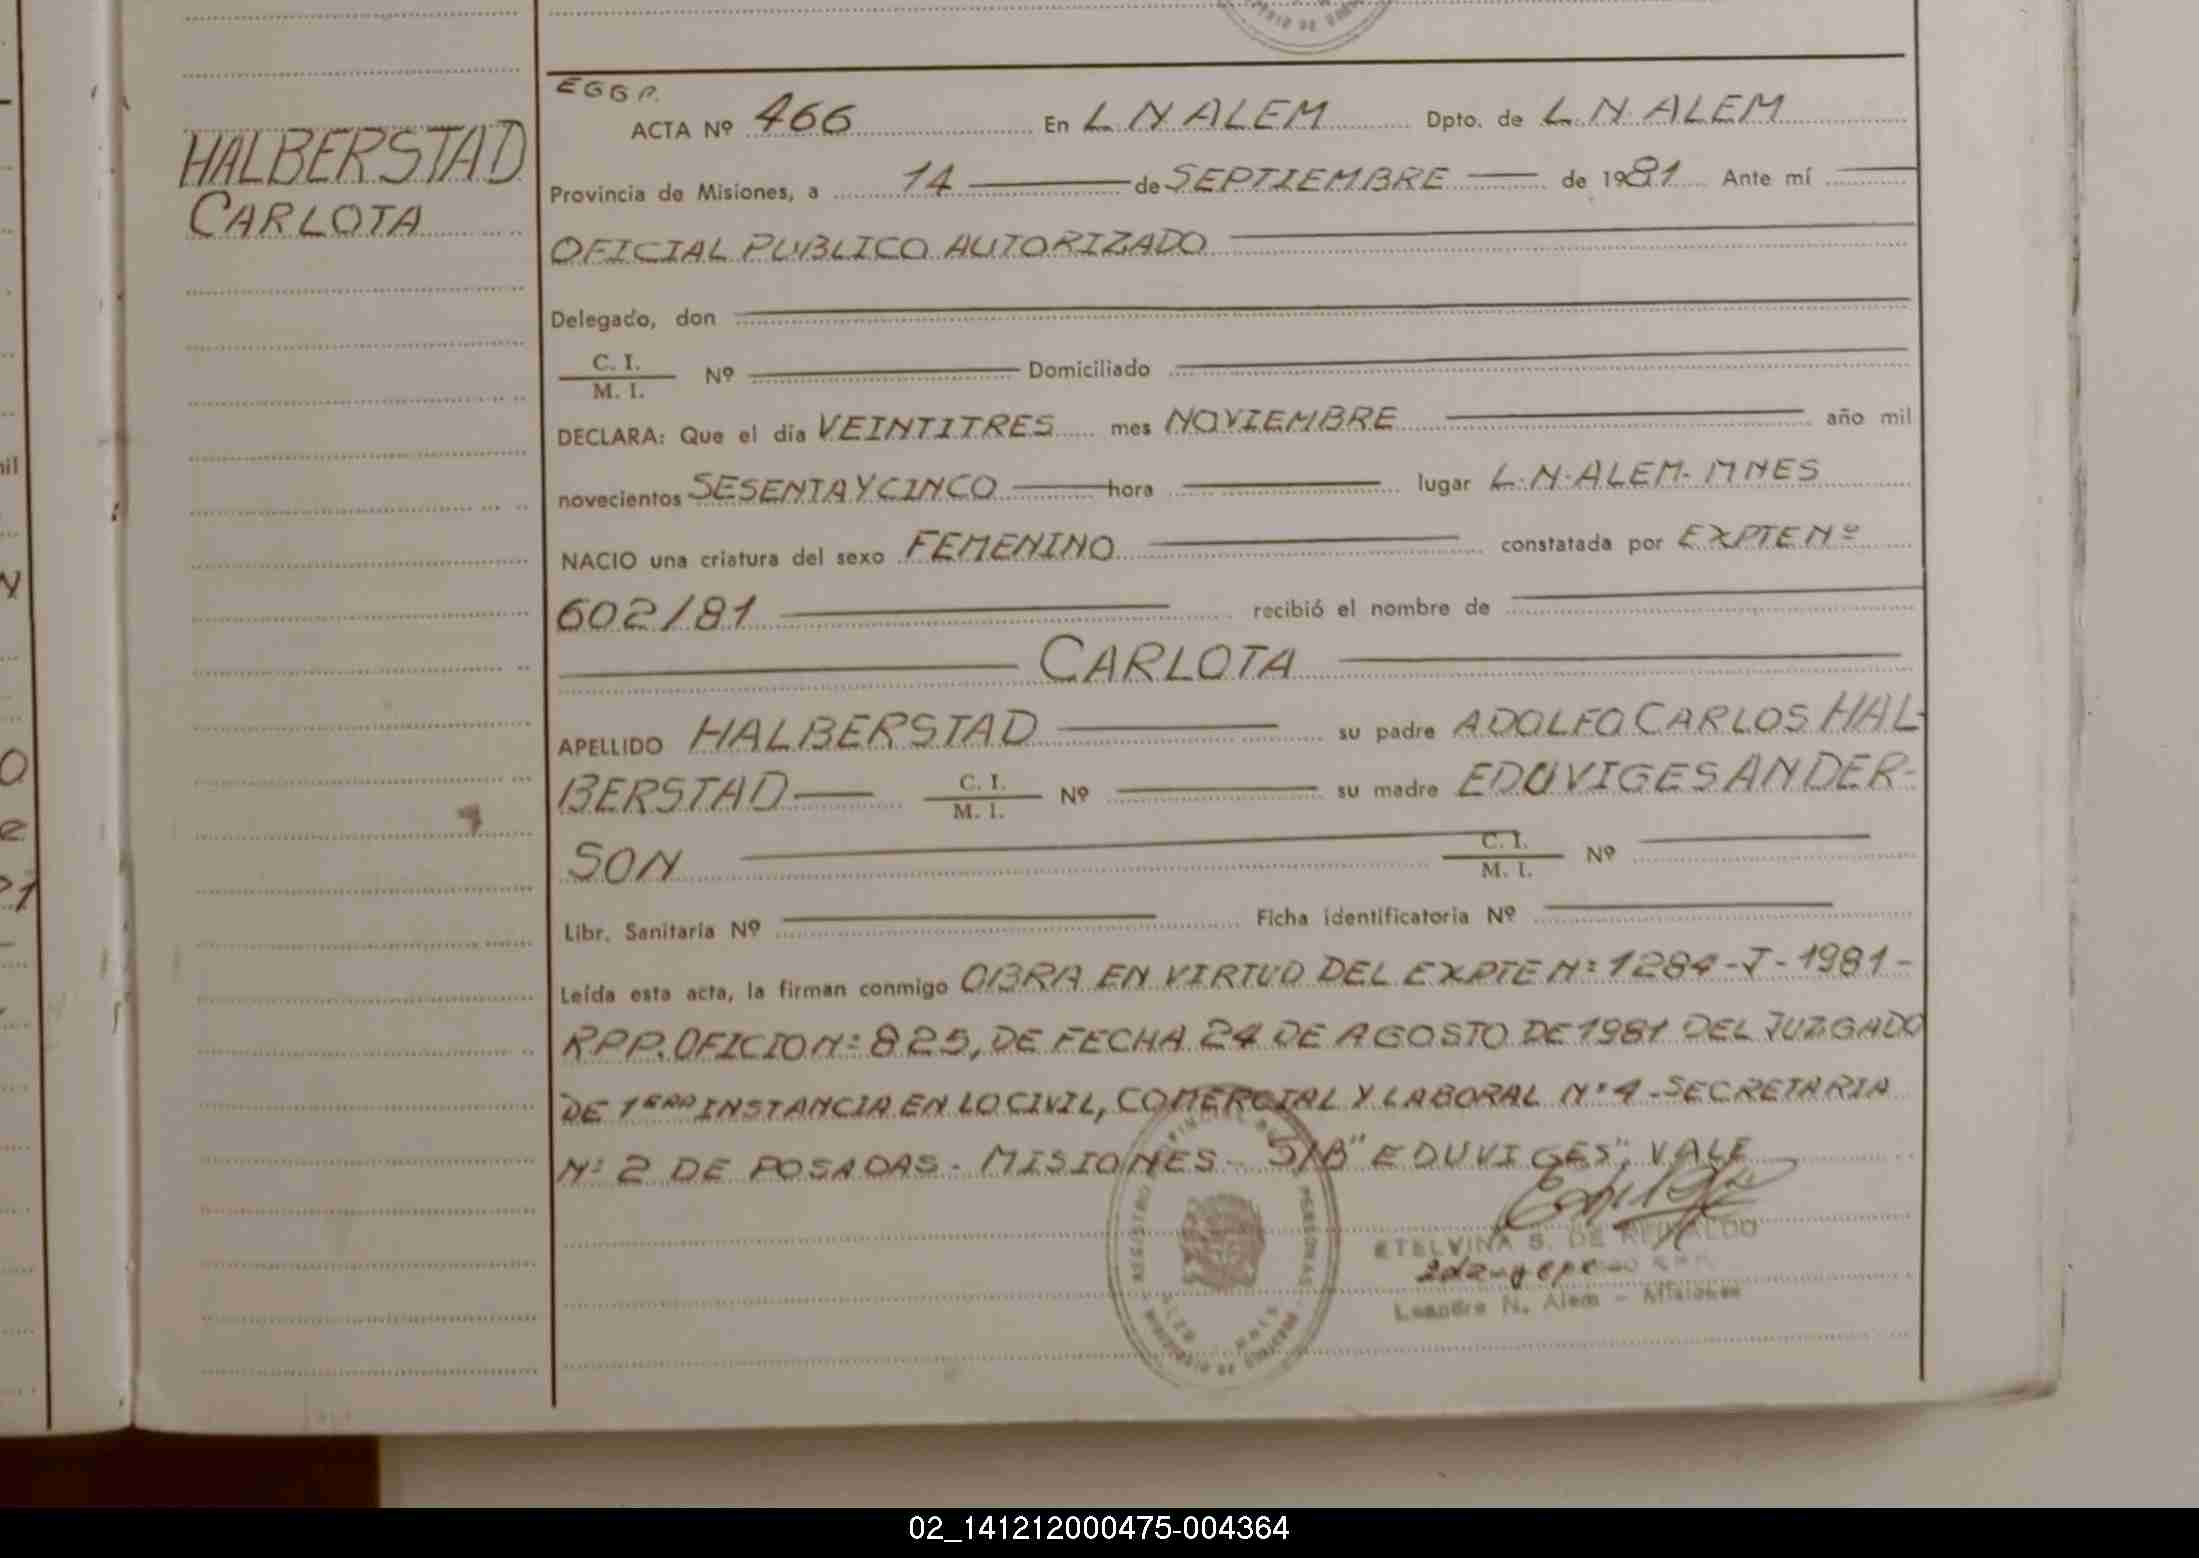 HALBERSTAD
CARLOTA
EGGP.
ACTA Nº 466 En L N ALEM Dpto. de L. N. ALEM
Provincia de Misiones, a 14 de SEPTIEMBRE de 1981 Ante mí
OFICIAL PUBLICO AUTORIZADO
Delegado, don
C. I.
M. I. Nº Domiciliado
DECLARA: Que el día VEINTITRES mes NOVIEMBRE año mil
novecientos SESENTA Y CINCO hora lugar L.N.ALEM-MNES
NACIO una criatura del sexo FEMENINO constatada por EXPTE Nº
602/81 recibió el nombre de
CARLOTA
APELLIDO HALBERSTAD su padre ADOLFO CARLOS HAL-
BERSTAD C. I. M. I. Nº su madre EDUVIGES ANDER-
SON C. I. M. I. Nº
Libr. Sanitaria Nº Ficha identificatoria Nº
Leída esta acta, la firman conmigo OBRA EN VIRTUD DEL EXPTE Nº 1284-J-1981-
RPP. OFICIO Nº 825, DE FECHA 24 DE AGOSTO DE 1981 DEL JUZGADO
DE 1ERA INSTANCIA EN LO CIVIL, COMERCIAL Y LABORAL Nº 4-SECRETARIA
Nº 2 DE POSADAS - MISIONES - S/B "EDUVIGES", VALE
ETELVINA S. DE REINALDO
Leandro N. Alem - Misiones
02_141212000475-004364